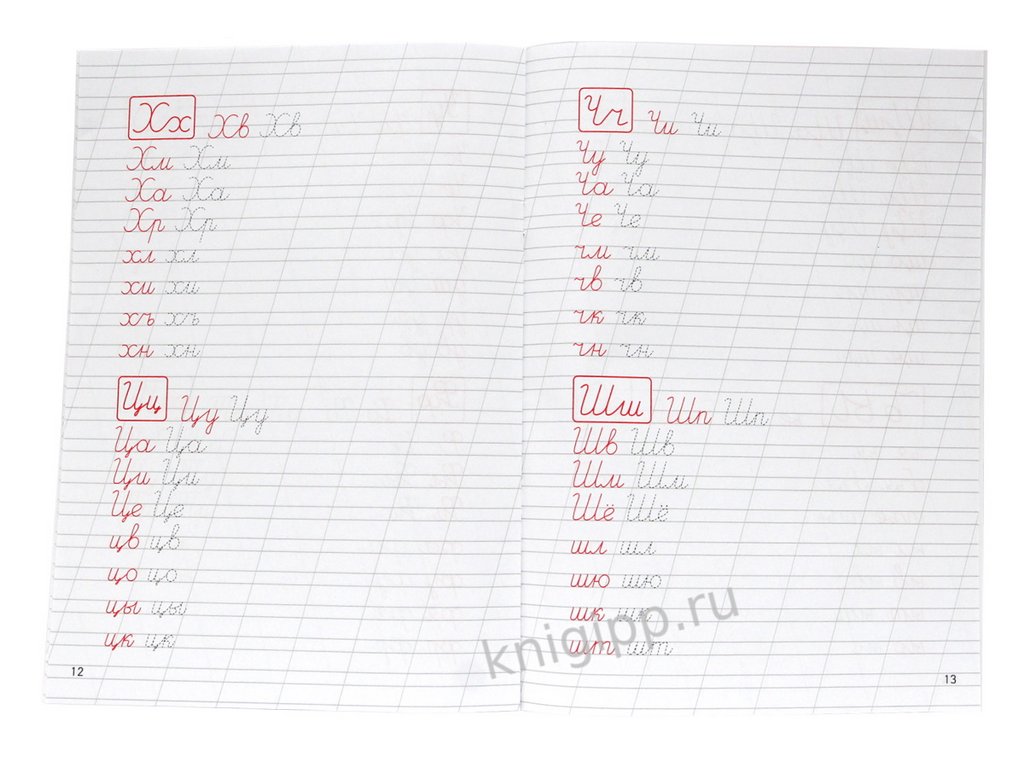 Хх Хв Хв
Хм Хм
Ха Ха
Хр Хр
хл хл
хи хи
хъ хъ
хн хн
Цц Цу Цу
Ца Ца
Ци Ци
Це Це
цв цв
цо цо
цы цы
цк цк
12
Чч Чи Чи
Чу Чу
Ча Ча
Че Че
чм чм
чв чв
чк чк
чн чн
Шш Шп Шп
Шв Шв
Шм Шм
Шё Шё
шл шл
шю шю
шк шк
шт шт
13
knigipp.ru